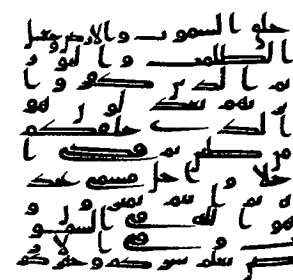 خلق السموت والارض وجعل
الظلمت والنور
ثم الذين كفروا
بربهم يعدلون هو
الذي خلقكم
من طين ثم قضى ا
جلا واجل مسمى عند
ه ثم انتم تمترون و
هو الله في السمو
ت وفي الارض
يعلم سركم وجهركم